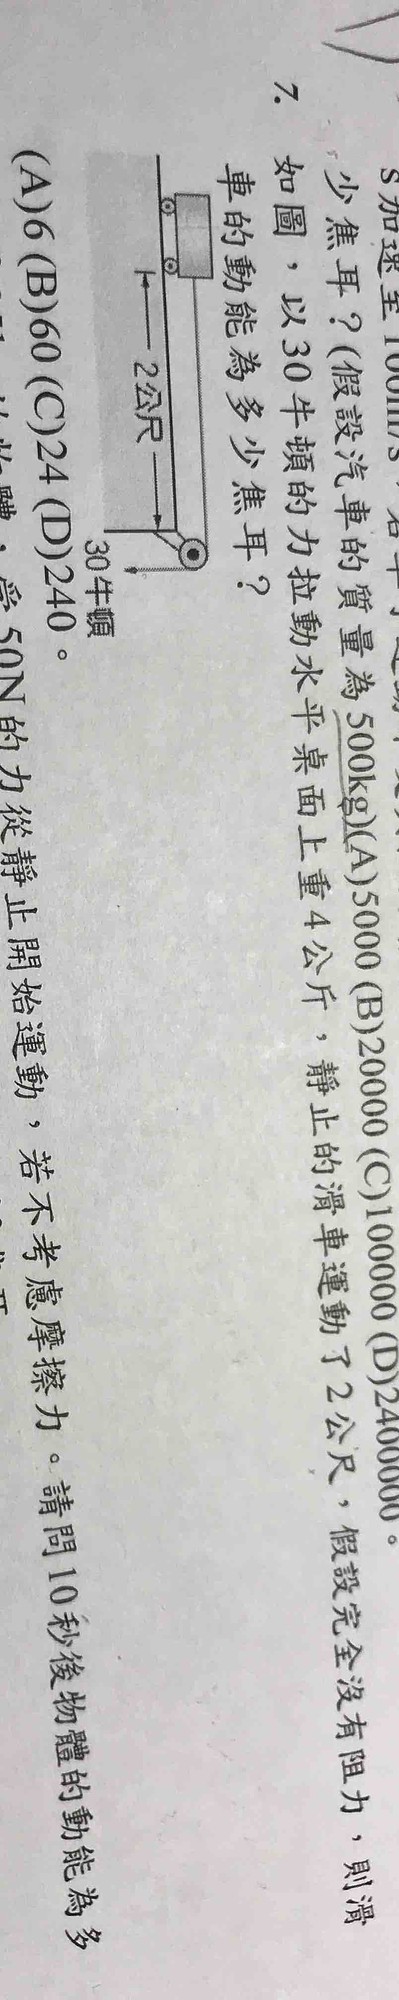 s加速至100m/s，若
少焦耳？(假設汽車的質量為500kg)(A)5000 (B)20000 (C)100000 (D)2400000。
7. 如圖，以30牛頓的力拉動水平桌面上重4公斤，靜止的滑車運動了2公尺，假設完全沒有阻力，則滑
車的動能為多少焦耳？
2公尺
30牛頓
(A)6 (B)60 (C)24 (D)240。
物體，受50N的力從靜止開始運動，若不考慮摩擦力。請問10秒後物體的動能為多